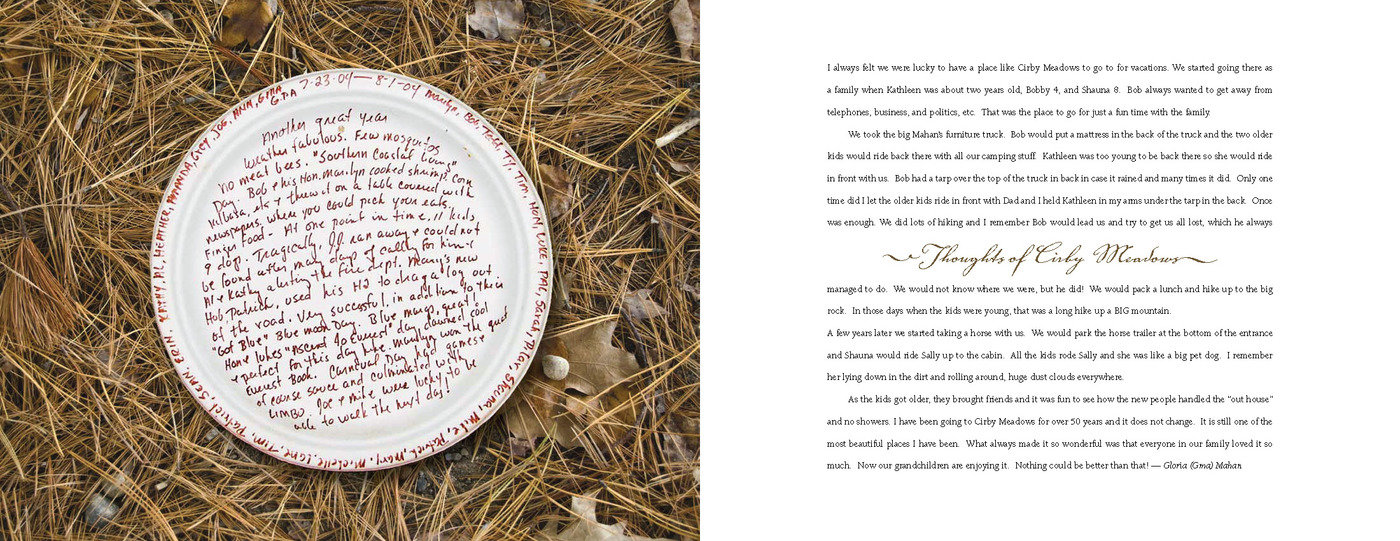 7-23-04 — 8-1-04 Marilyn, Bob, Tessa, Ty, Tim, Mom, Luke, Pal, Sarah, Pilar, Shauna, Mike, Patrick, Mary, Michelle, Lane, Tim, Patrick, Sean, Erin, Kathy, Al, Heather, Amanda, Grey, Joe, Ann, Gma
GPA
Another great year
Weather fabulous. Few mosquitos
no meat bees. "Southern Coastal Living"
Day. Bob & his Hon. Marilyn cooked shrimp, corn
Kilbasa, etc & threw it on a table covered with
newspapers where you could pick your eats.
Finger Food - At one point in time, 11 kids,
9 dogs. Tragically, J.J. ran away & could not
be found after many days of calling for him &
Al & Kathy alerting the fire dept. Mary's new
Hub, Patrick, used his H2 to drag a log out
of the road. Very successful, in addition to their
"Got Blue" Blue moon Day. Blue margs, great!
Hank Lukes "Ascent to Everest" day dawned cool
& perfect for this day hike. Marilyn won the great
Everest Book. Carnival Day had games
of course sauce and culminated with
Limbo. Joe & Mike were lucky to be
able to walk the next day!
I always felt we were lucky to have a place like Cirby Meadows to go to for vacations. We started going there as
a family when Kathleen was about two years old, Bobby 4, and Shauna 8. Bob always wanted to get away from
telephones, business, and politics, etc. That was the place to go for just a fun time with the family.
We took the big Mahan's furniture truck. Bob would put a mattress in the back of the truck and the two older
kids would ride back there with all our camping stuff. Kathleen was too young to be back there so she would ride
in front with us. Bob had a tarp over the top of the truck in back in case it rained and many times it did. Only one
time did I let the older kids ride in front with Dad and I held Kathleen in my arms under the tarp in the back. Once
was enough. We did lots of hiking and I remember Bob would lead us and try to get us all lost, which he always
Thoughts of Cirby Meadows
managed to do. We would not know where we were, but he did! We would pack a lunch and hike up to the big
rock. In those days when the kids were young, that was a long hike up a BIG mountain.
A few years later we started taking a horse with us. We would park the horse trailer at the bottom of the entrance
and Shauna would ride Sally up to the cabin. All the kids rode Sally and she was like a big pet dog. I remember
her lying down in the dirt and rolling around, huge dust clouds everywhere.
As the kids got older, they brought friends and it was fun to see how the new people handled the "out house"
and no showers. I have been going to Cirby Meadows for over 50 years and it does not change. It is still one of the
most beautiful places I have been. What always made it so wonderful was that everyone in our family loved it so
much. Now our grandchildren are enjoying it. Nothing could be better than that! — Gloria (Gma) Mahan